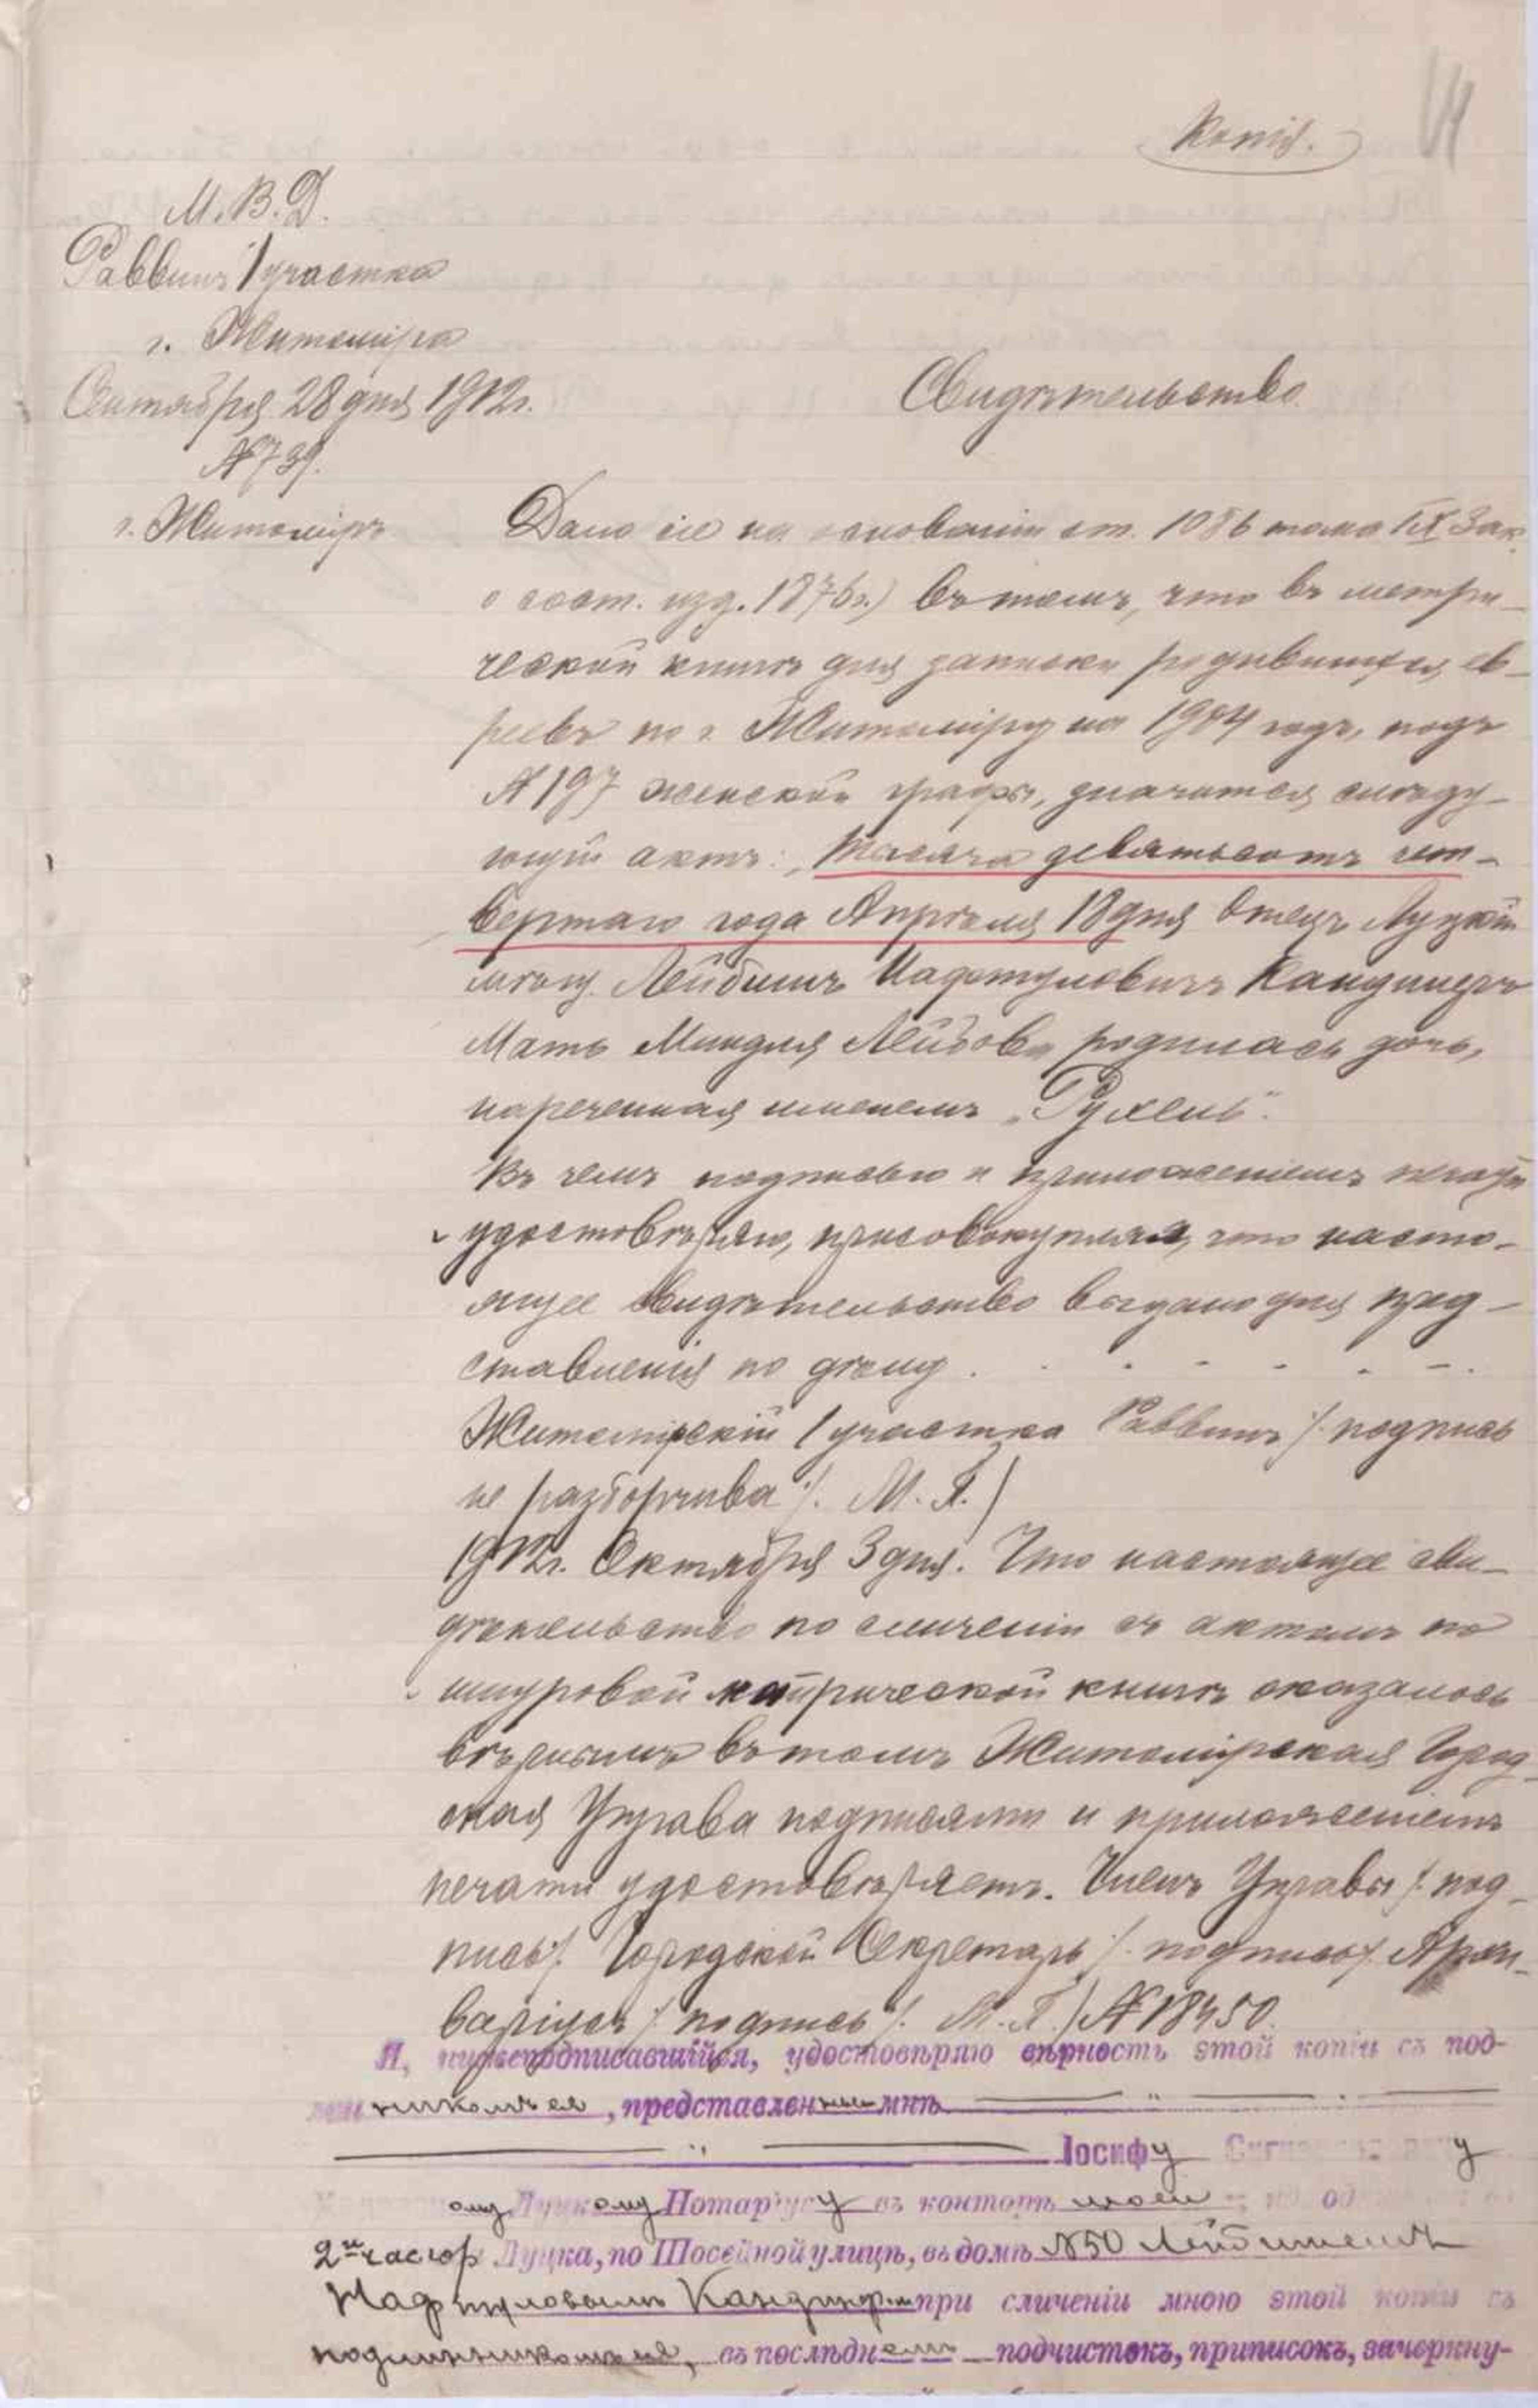 Копія.
М. В. Д.
Раввинъ 1 участка
г. Житомира
Сентября 28 дня 1912 г.
№ 739.
г. Житоміръ
Свидѣтельство.
Дано сіе на основаніи ст. 1086 тома IX Зак.
о сост. изд. 1876 г.) въ томъ, что въ метри-
ческой книгѣ для записки родившихся ев-
реевъ по г. Житоміру на 1904 годъ, подъ
№ 197 женской графы, значится слѣду-
ющій актъ: „Тысяча девятьсотъ чет-
вертаго года Апрѣля 18 дня Отецъ Луцкій
мѣщ. Лейбишъ Нафтуловичъ Кандинеръ
Мать Миндля Лейбова родилась дочь,
нареченная именемъ „Рухель".
Въ чемъ подписью и приложеніемъ печати
удостовѣряю, присовокупляя, что насто-
ящее свидѣтельство выдано для пред-
ставленія по дѣлу . . - - - . -.
Житомірскій 1 участка Раввинъ /. подпись
не разборчива /. М. П. )
1912 г. Октября 3 дня. Что настоящее сви-
дѣтельство по сличеніи съ актомъ по
шнуровой метрической книгѣ оказалось
вѣрнымъ въ томъ Житомірская Город-
ская Управа подписями и приложеніемъ
печати удостовѣряетъ. Членъ Управы /. под-
пись /. Городской Секретарь /. подпись /. Архи-
варіусъ /. подпись /. М. П. ) № 18450.
Я, нижеподписавшійся, удостовѣряю вѣрность этой копіи съ под-
линникомъ ея, представленнымъ мнѣ
Іосифу
Луцкому Нотаріусу въ конторѣ моей
2й части гор. Луцка, по Шосейной улицѣ, въ домѣ № 50 Лейбишемъ
Нафтуловымъ при сличеніи мною этой копіи съ
подлинникомъ ея, въ послѣднемъ подчистокъ, приписокъ, зачеркну-